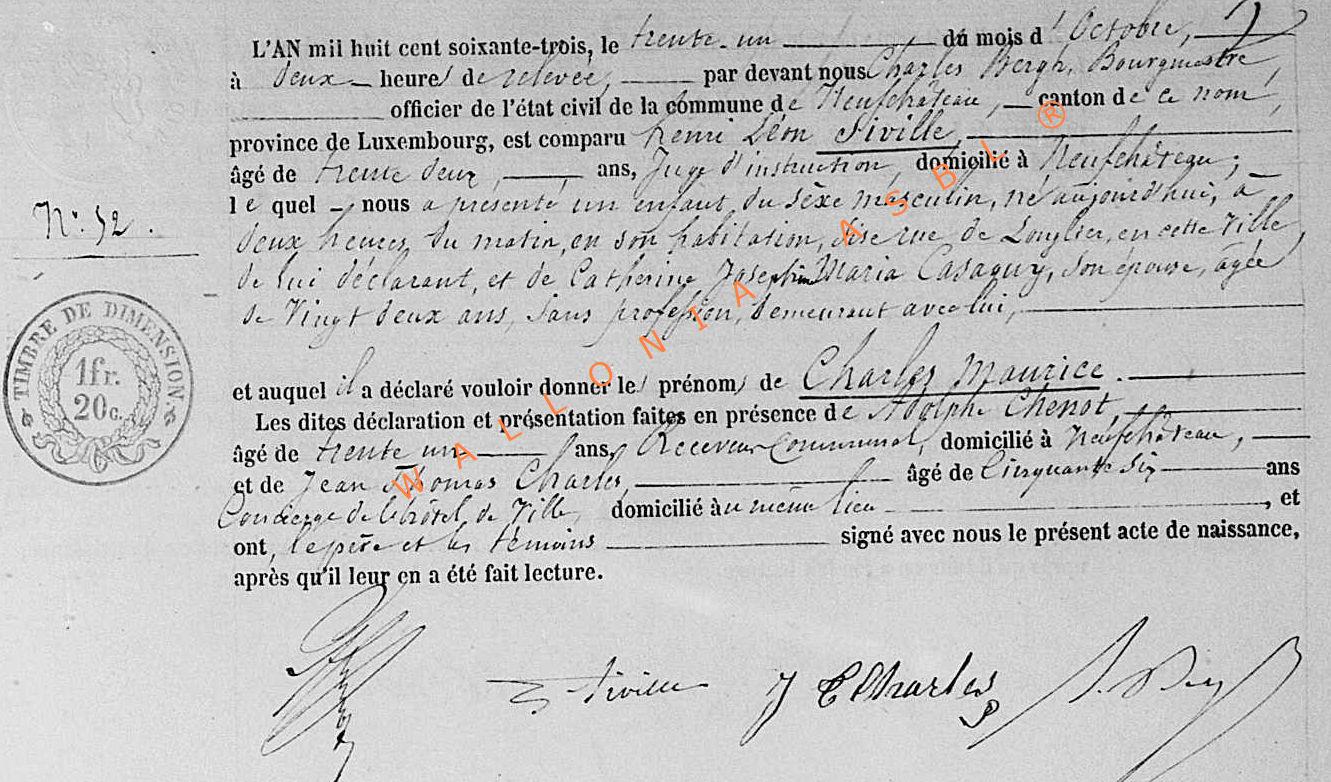 L'AN mil huit cent soixante-trois, le trente-un du mois d'Octobre,
à deux heures de relevée, par devant nous Charles Bergh, Bourgmestre,
officier de l'état civil de la commune de Neufchâteau, canton de ce nom,
province de Luxembourg, est comparu Henri Léon Siville,
âgé de trente deux, ans, Juge d'instruction, domicilié à Neufchâteau;
lequel nous a présenté un enfant du sèxe masculin, né aujourd'hui, à
N° 52.
deux heures du matin, en son habitation, sise rue de Longlier, en cette Ville,
de lui déclarant, et de Catherine Josephine Maria Casaquy, son épouse, agée
de Vingt deux ans, sans profession, demeurant avec lui,
TIMBRE DE DIMENSION
1fr.
20c.
et auquel il a déclaré vouloir donner les prénoms de Charles Maurice.
Les dites déclaration et présentation faites en présence de Adolphe Chenot,
âgé de trente un ans, Receveur Communal, domicilié à Neufchâteau,
et de Jean Thomas Charles, âgé de Cinquante six ans
Concierge de l'hôtel de Ville, domicilié au même lieu, et
ont, le père et les témoins signé avec nous le présent acte de naissance,
après qu'il leur en a été fait lecture.
Siville J T Charles
WALLONIA ASBL ®